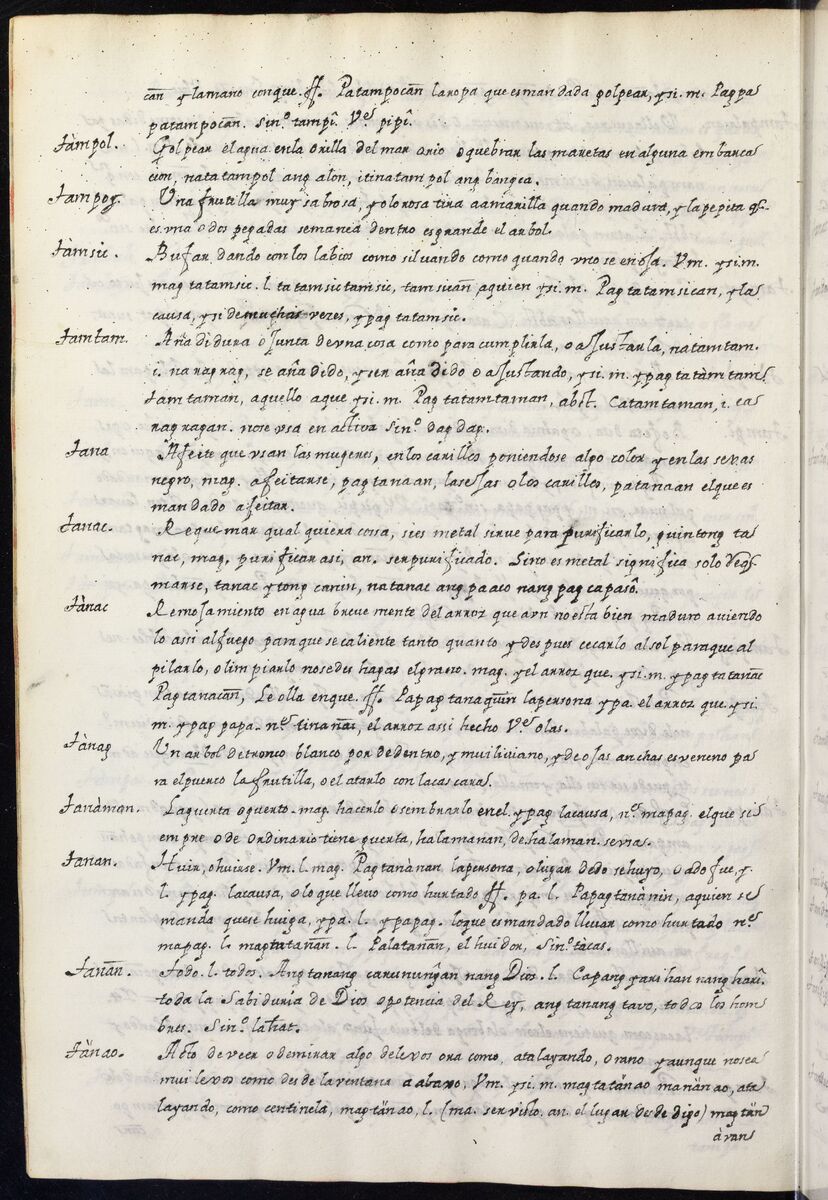 can y la mano conque. ff. Patampocan la ropa que es mandada golpear, y si. m. Pagpa
patampocan. Sin.º tampi. Ve. pipi.
tàmpol. Golpear el agua en la orilla del mar o rio o quebrar las maretas en alguna embarca
cion, natatampol ang alon, itinatampol ang bangca.
tampoy. Una frutilla muy sabrosa, y olorosa tira a amarilla quando madura, y la pepita
es vna o dos pegadas semanea dentro es grande el arbol.
tàmsic. Bufar dando con los labios como siluando como quando vno se enoja. Vm. y si. m.
mag tatamsic. l. tatamsictamsic, tamsican aquien y si. m. Pag tatamsican, y la
causa, y si de muchas vezes, y pag tatamsic.
tamtam. Añadidura o junta de vna cosa como para cumplirla, o ajustarla, natamtam.
i. naragrag, se añadido, y ser añadido o ajustando, y si. m. y pag tatàmtam
tamtaman, aquello aque y si. m. Pag tatamtaman, abst. Catamtaman, i. ca
ragragan. nose vsa en activa Sin.º dapdap.
tana Afeite que vsan las mugeres, en los carillos poniendose algo color y en las sejas
negro, mag. afeitarse, pagtanaan, las ejas o los carillos, patanaan el que es
mandado afeitar.
tanac. Requemar qual quiera cossa, si es metal sirue para purificarlo, guintong ta
nac, mag. purificar asi, an. ser purificado. Sino es metal significa solo
marse, tanac y tong canin, natanac ang paaco nang pag capaso.
tànac Remojamiento en agua breue mente del arroz que avn no esta bien maduro auiendo
lo assi al fuego paraque se caliente tanto quanto y des pues cecarlo al sol paraque al
pilarlo, o limpiarlo nose des haga el grano. mag. y el arroz que. y si. m y pag tatanac
Pagtanacan, Le olla enque. ff. Papagtanaquin la persona y pa. el arroz que. y si.
m. y pag papa. n.e tinanac, el arroz assi hecho Ve. olas.
tànag Un arbol de tronco blanco por de dentro, y mui liuiano, y de ojas anchas es veneno pa
ra el puerco la frutilla, o el atarlo con las cascaras.
tanàman. La guerta o guerto. mag. hacerlo o sembrarlo en el. y pag la causa, n.e mapag. el que si
empre o de ordinario tiene guerta, halamanan, de halaman. seruas.
tanan. Huir, o huirse. Vm. l. mag. Pag tanànan la persona, o lugar dedo se huyo, o ado fue, y.
l. y pag. la causa, o lo que lleuo como hurtado ff. pa. l. Papag tanànin, aquien se
manda que se huiga, y pa. l. y papag. lo que es mandado lleuar como hurtado n.e
mapag. l. magtatanan. l. Palatanan, el huidor, Sin.º tàcas.
tanan. todo. l. todos. Ang tanang carunungan nang Dios. l. Capangyarihan nang hari.
toda la Sabiduria de Dios o potencia del Rey, ang tanang tavo, todos los hom
bres. Sin.º lahat.
tànao. Acto de veer o de mirar algo de lexos ora como, atalayando, o rano y aunque no sea
mui lexos como desde la ventana a abaxo, Vm. y si. m. magtatànao manànao, ata
layando, como centinela, magtànao, l. (ma. ser visto. an. el lugar desde digo) magtan
àvan